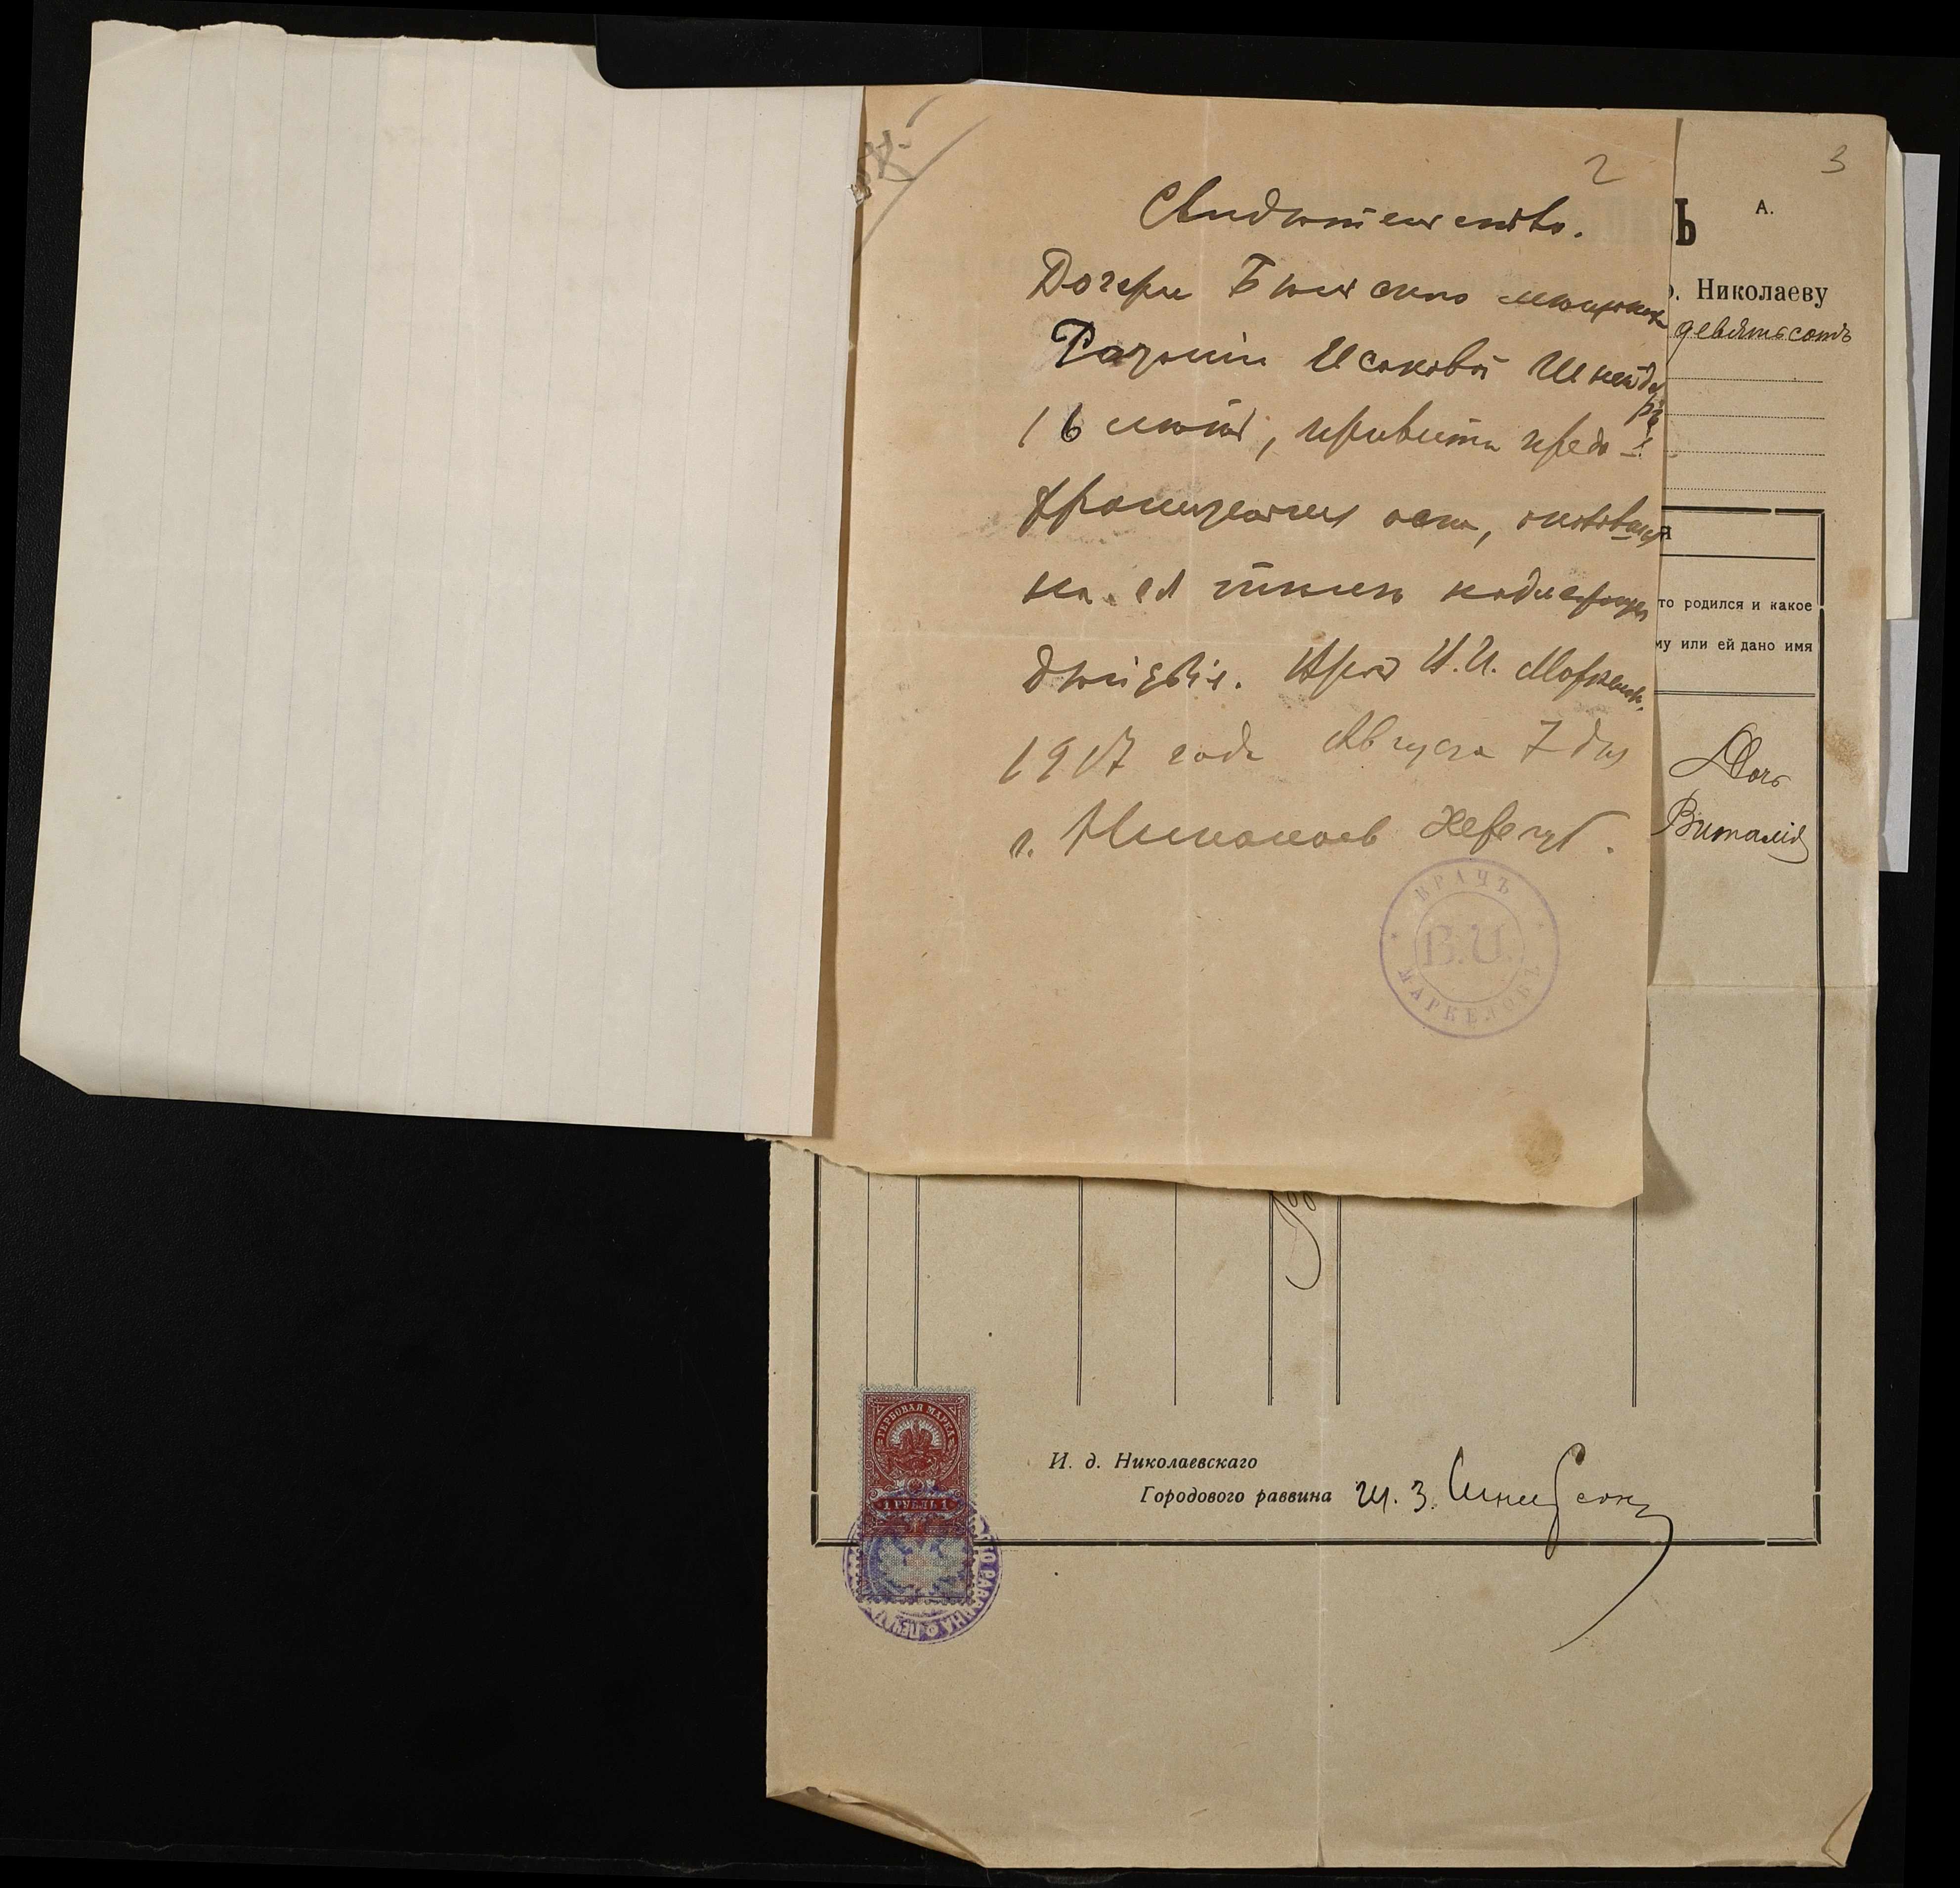 2
Свидѣтельство.
Дочери Бѣльскаго мѣщанина
Исаковой Шнейдеръ
16 лѣтъ, привита предо-
хранительная оспа, оказавшая
на ея тѣлѣ надлежащее
дѣйствіе. Врач
1917 года Августа 7 дня
г. Николаев Хер. губ.
ВРАЧЪ
В.И.
МАРКЕЛОВЪ
3
Ь
А.
Николаеву
девятьсотъ
я
то родился и какое
му или ей дано имя
Дочь
Виталія
ГЕРБОВАЯ МАРКА
1 РУБЛЬ 1
И. д. Николаевскаго
Городового раввина